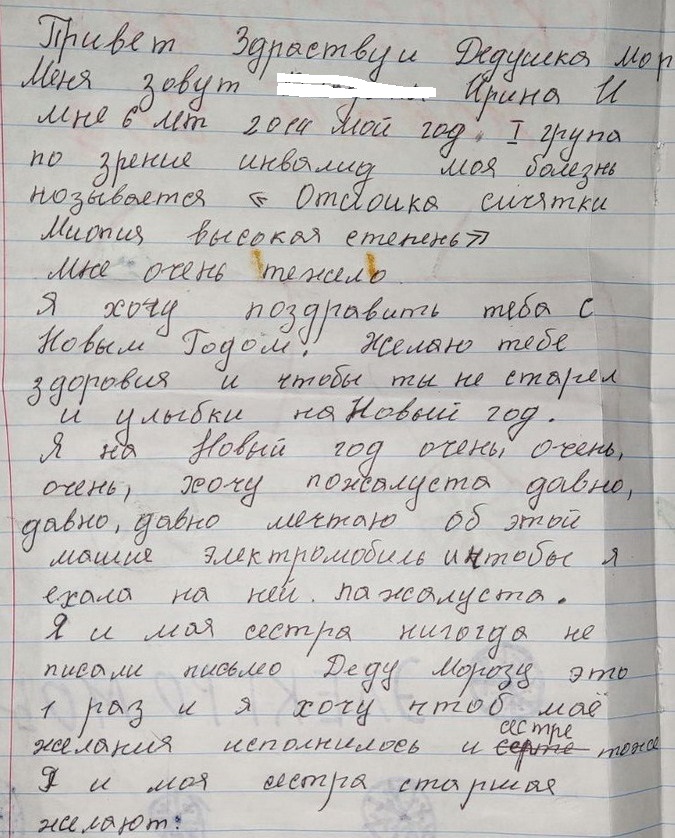 Привет Здраствуи Дедушка Мор
Меня зовут Ирина И
мне 6 лет 2014 мой год. I група
по зрение инвалид моя болезнь
называется « Отслоика сичятки
Миопия высокая степень»
Мне очень тежело
Я хочу поздравить тебя с
Новым Годом. Желаю тебе
здоровия и чтобы ты не старел
и улыбки на Новый год.
Я на Новый год очень, очень,
очень, хочу пожалуста давно,
давно, давно мечтаю об этой
машие электромобиль и чтобы я
ехала на ней. пажалуста.
Я и моя сестра нигогда не
писали письмо Деду Морозу это
1 раз и я хочу чтоб маё
желания исполнилось и сестре тоже
Я и моя сестра старшая
желают: